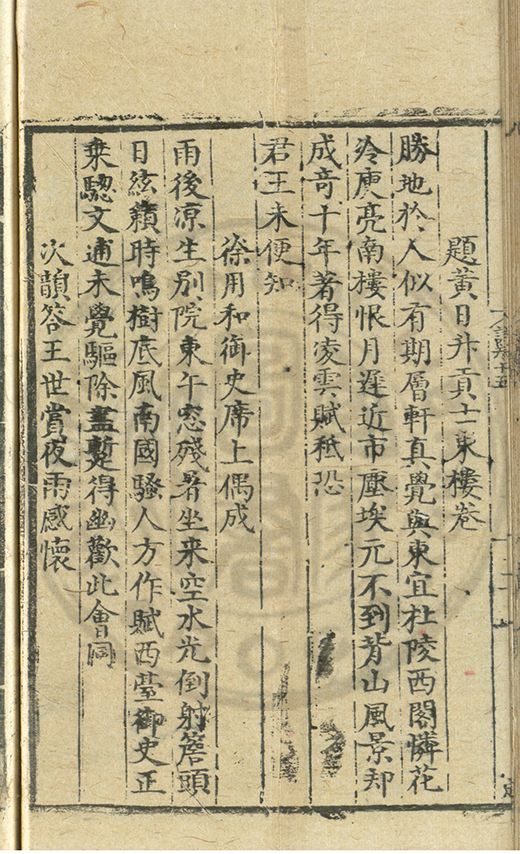 題黃日升貢士東樓卷
勝地於人似有期層軒真覺與東宜杜陵西閣憐花
冷庾亮南樓恨月遲近市塵埃元不到背山風景却
成奇十年著得凌雲賦秪恐
君王未便知
徐用和御史席上偶成
雨後凉生別院東午窓殘暑坐来空水光倒射簷頭
日絃籟時鳴樹底風南國騷人方作賦西臺御史正
乗驄文逋未覺驅除盡蹔得幽歡此會同
次韻答王世賞夜雨感懷